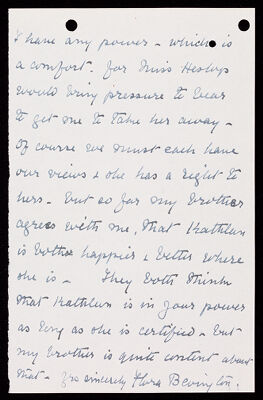 I have any power - which is
a comfort. for Miss Heslop
would bring pressure to bear
to get me to take her away -
Of course we must each have
our views & she has a right to
hers - but so far my brother
agrees with me, that Kathleen
is both happier & better where
she is - They both think
that Kathleen is in your power
as long as she is certified - but
my brother is quite content about
that - Yrs sincerely Flora Bevington.